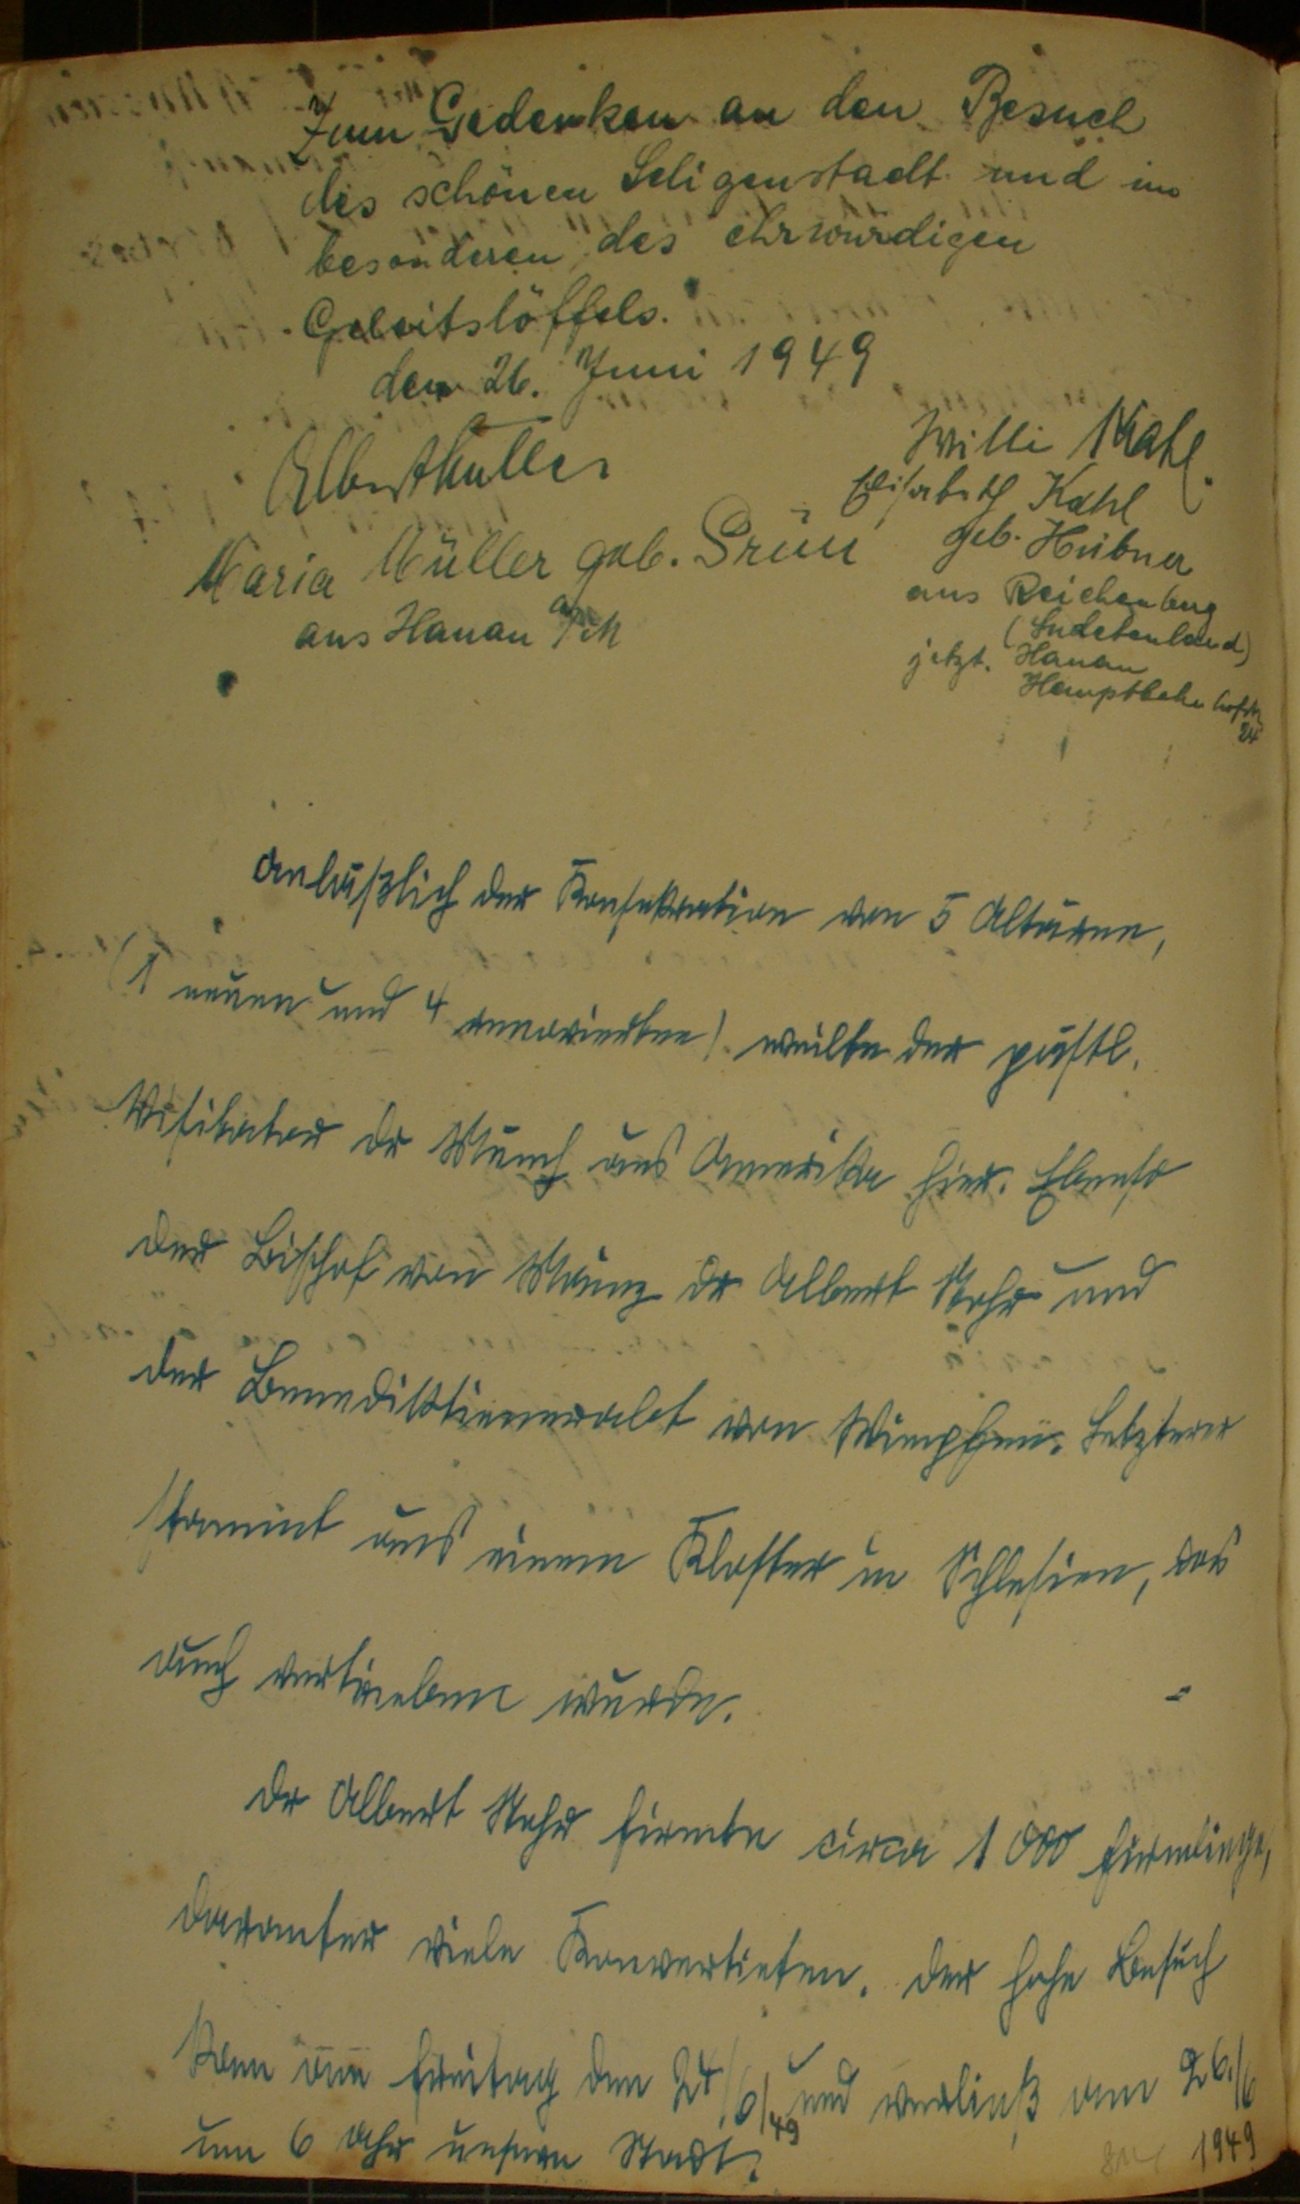 Zum Gedenken an den Besuch
des schönen Seligenstadt und im
besonderen des ehrwürdigen
Geleitslöffels.
den 26. Juni 1949
Albert Müller
Willi Kahl.
Elisabeth Kahl
geb. Hübner
Maria Müller geb. Grün
aus Reichenberg
aus Hanau a/M
(Sudetenland)
jetzt. Hanau
Hauptbahnhofstr
24
Anläßlich der Konsekration von 5 Altären,
(1 neuen und 4 renovierten) weilte der päpstl.
Visitator Dr Münch aus Amerika hier. Ebenso
der Bischof von Mainz Dr Albert Stohr und
der Benediktinerabt von Wimpfen. Letzterer
stammt aus einem Kloster in Schlesien, das
auch vertrieben wurde.
Dr Albert Stohr firmte circa 1000 Firmlinge,
darunter viele Konvertiten. Der hohe Besuch
kam am Freitag den 24/6/49 und verließ am 26./6
um 6 Uhr unsere Stadt.
1949